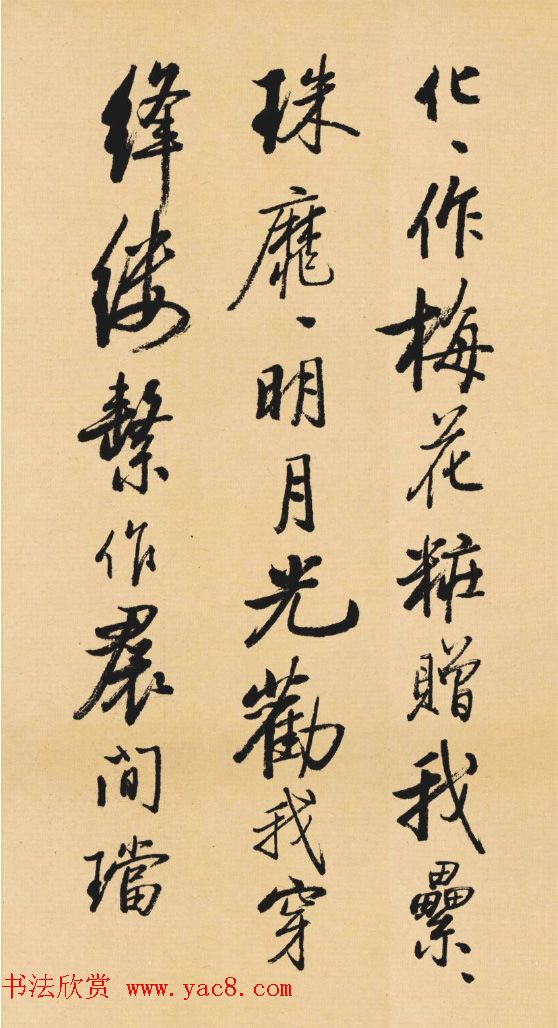 化〻作梅花粧贈我纍〻
珠靡〻明月光勸我穿
絳縷繫作裠間璫
书法欣赏 www.yac8.com